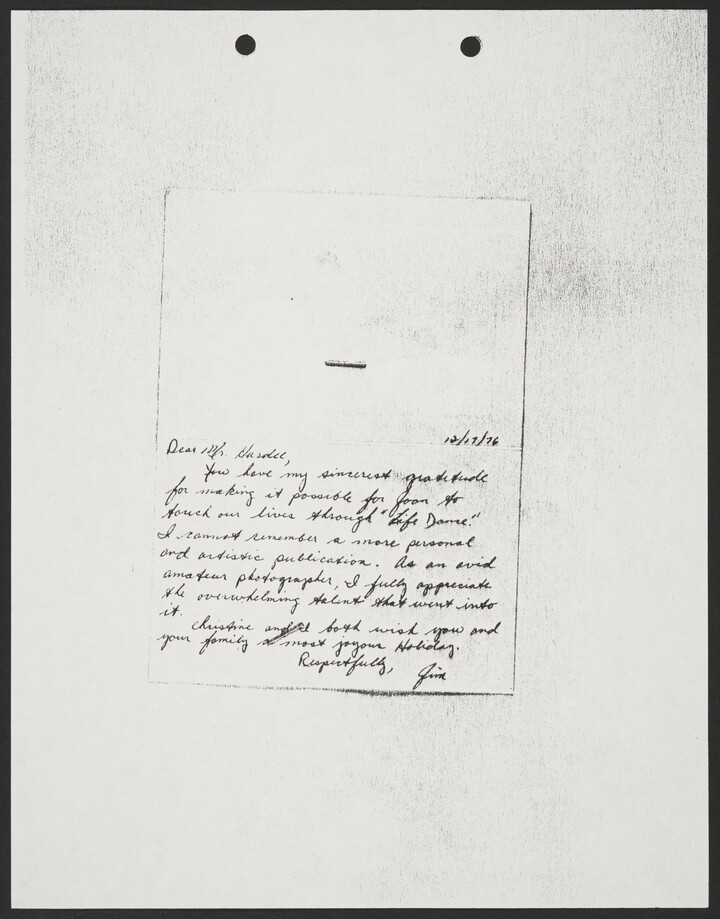 12/17/76
Dear Mr. Hardee,
You have my sincerest gratitude
for making it possible for Joan to
touch our lives through "Life Dance."
I cannot remember a more personal
and artistic publication. As an avid
amateur photographer, I fully appreciate
the overwhelming talent that went into
it.
Christine and I both wish you and
your family a most joyous Holiday.
Respectfully, Jim